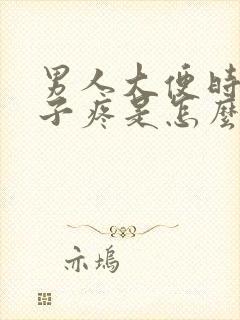 男人大便时
子疼是怎麼
亦塢